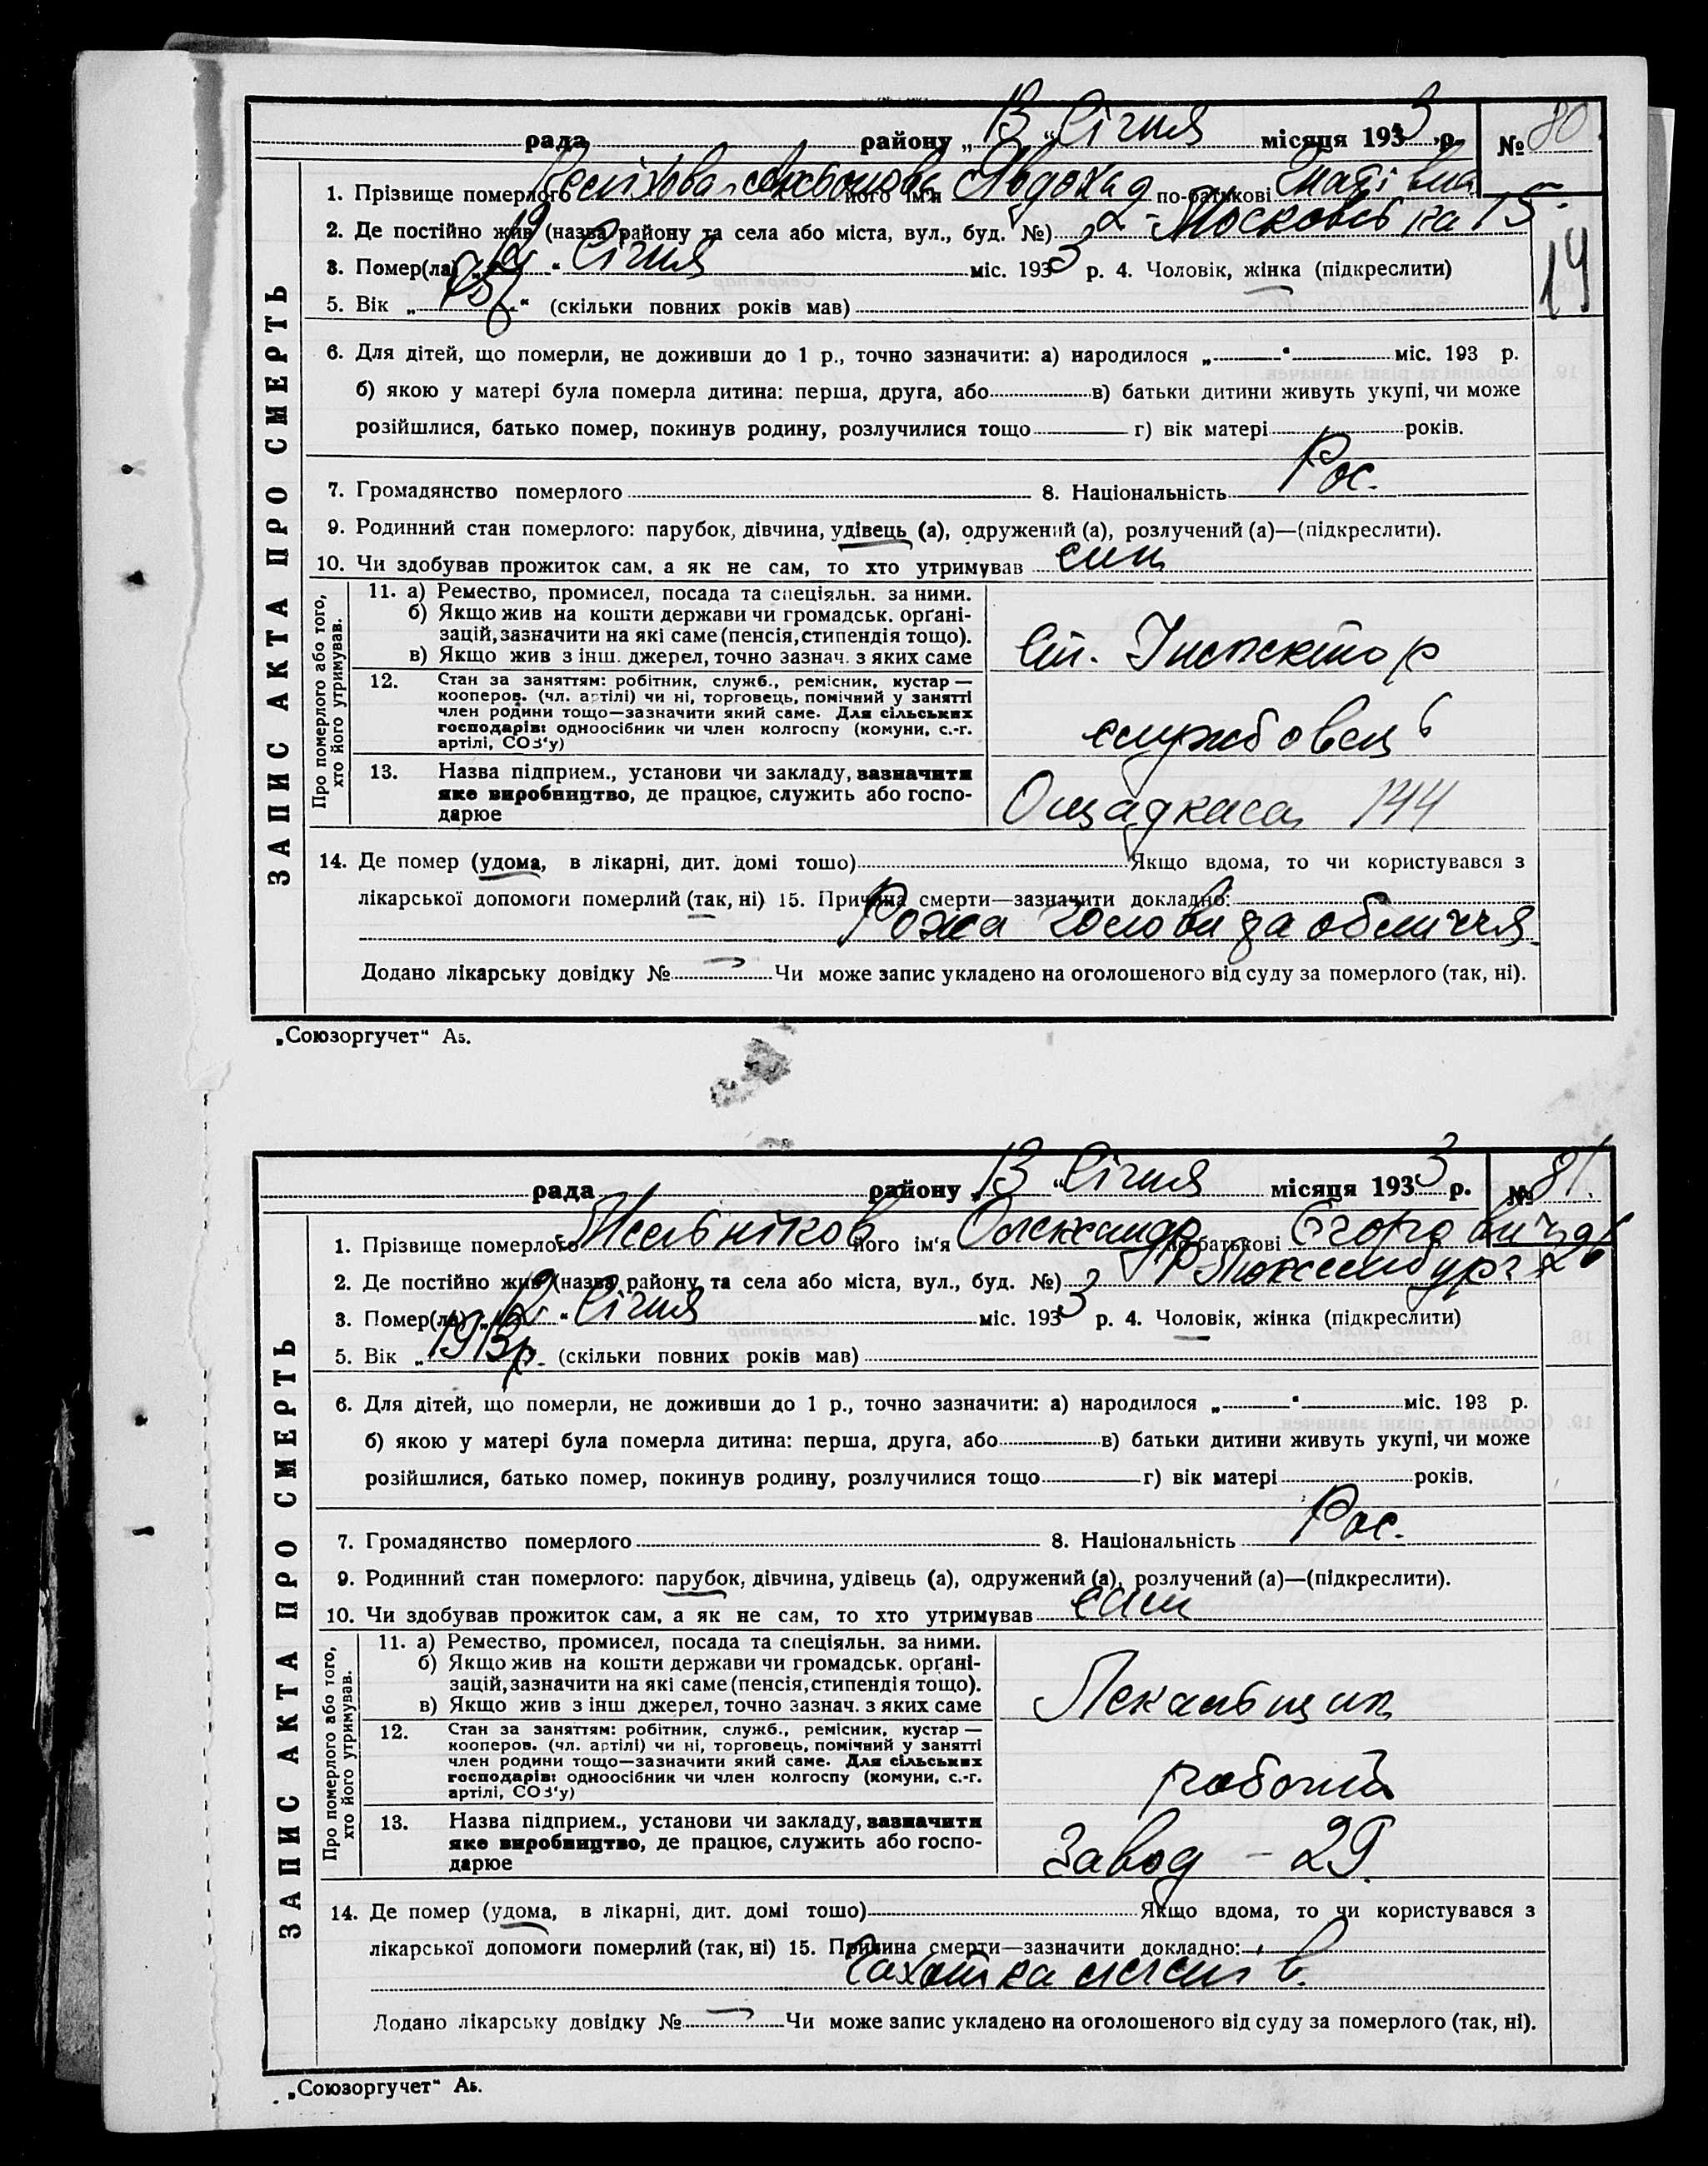 рада району „13“ Січня місяця 1933 р. № 80.
1. Прізвище померлого його ім'я Явдоха по-батькові Гнатівна
2. Де постійно жив (назва району та села або міста, вул., буд. №) 2-Московська 15
3. Помер(ла) „12“ Січня міс. 1933 р. 4. Чоловік, жінка (підкреслити)
14
5. Вік „“ (скільки повних років мав)
6. Для дітей, що померли, не доживши до 1 р., точно зазначити: а) народилося „ “ міс. 193 р.
б) якою у матері була померла дитина: перша, друга, або в) батьки дитини живуть укупі, чи може
розійшлися, батько помер, покинув родину, розлучилися тощо г) вік матері років.
7. Громадянство померлого 8. Національність Рос.
9. Родинний стан померлого: парубок, дівчина, удівець (а), одружений (а), розлучений (а)—(підкреслити).
10. Чи здобував прожиток сам, а як не сам, то хто утримував син
ЗАПИС АКТА ПРО СМЕРТЬ
Про померлого або того,
хто його утримував.
11. а) Ремество, промисел, посада та спеціяльн. за ними.
б) Якщо жив на кошти держави чи громадськ. орґані-
зацій, зазначити на які саме (пенсія, стипендія тощо).
в) Якщо жив з інш. джерел, точно зазнач. з яких саме
Ст. Інспектор
12. Стан за заняттям: робітник, служб., ремісник, кустар —
кооперов. (чл. артілі) чи ні, торговець, помічний у занятті
член родини тощо—зазначити який саме. Для сільських
господарів: одноосібник чи член колгоспу (комуни, с.-г.
артілі, СОЗ'у)
службовець
13. Назва підприєм., установи чи закладу, зазначити
яке виробництво, де працює, служить або госпо-
дарює
Ощадкаса 144
14. Де помер (удома, в лікарні, дит. домі тощо) Якщо вдома, то чи користувався з
лікарської допомоги померлий (так, ні) 15. Причина смерти—зазначити докладно:
Рожа голови та обличчя
Додано лікарську довідку № Чи може запис укладено на оголошеного від суду за померлого (так, ні).
„Союзоргучет“ А5.
рада району „13“ Січня місяця 1933 р. № 81.
1. Прізвище померлого Мельніков його ім'я Олександр по-батькові Єгорович
2. Де постійно жив (назва району та села або міста, вул., буд. №) Р. Люксембург
3. Помер(ла) „12“ Січня міс. 1933 р. 4. Чоловік, жінка (підкреслити)
5. Вік „1913р. (скільки повних років мав)
6. Для дітей, що померли, не доживши до 1 р., точно зазначити: а) народилося „ “ міс. 193 р.
б) якою у матері була померла дитина: перша, друга, або в) батьки дитини живуть укупі, чи може
розійшлися, батько помер, покинув родину, розлучилися тощо г) вік матері років.
7. Громадянство померлого 8. Національність Рос.
9. Родинний стан померлого: парубок, дівчина, удівець (а), одружений (а), розлучений (а)—(підкреслити).
10. Чи здобував прожиток сам, а як не сам, то хто утримував сам
ЗАПИС АКТА ПРО СМЕРТЬ
Про померлого або того,
хто його утримував.
11. а) Ремество, промисел, посада та спеціяльн. за ними.
б) Якщо жив на кошти держави чи громадськ. орґані-
зацій, зазначити на які саме (пенсія, стипендія тощо).
в) Якщо жив з інш джерел, точно зазнач. з яких саме
Лекальщик
12. Стан за заняттям: робітник, служб., ремісник, кустар —
кооперов. (чл. артілі) чи ні, торговець, помічний у занятті
член родини тощо—зазначити який саме. Для сільських
господарів: одноосібник чи член колгоспу (комуни, с.-г.
артілі, СОЗ'у)
робочий
13. Назва підприєм., установи чи закладу, зазначити
яке виробництво, де працює, служить або госпо-
дарює
Завод - 29.
14. Де помер (удома, в лікарні, дит. домі тощо) Якщо вдома, то чи користувався з
лікарської допомоги померлий (так, ні) 15. Причина смерти—зазначити докладно:
Чахотка
Додано лікарську довідку № Чи може запис укладено на оголошеного від суду за померлого (так, ні).
„Союзоргучет“ А5.